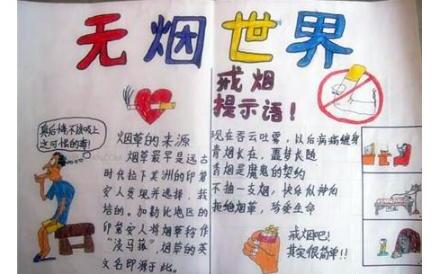 无烟世界
戒烟
提示语！
真后悔不该吸上
这可恨的毒！
烟草的来源
烟草最早是远古
时代拉丁美洲的印第
安人发现并选择，栽
培的。加勒比地区的
印第安人将烟草称作
“淡马菰”，烟草的英
文名即源于此。
现在吞云吐雾，以后病病缠身
青烟长在，噩梦长随
青烟是魔鬼的契约
不抽一支烟，快乐似神仙
拒绝烟草，珍爱生命
戒烟吧！
其实很简单！！